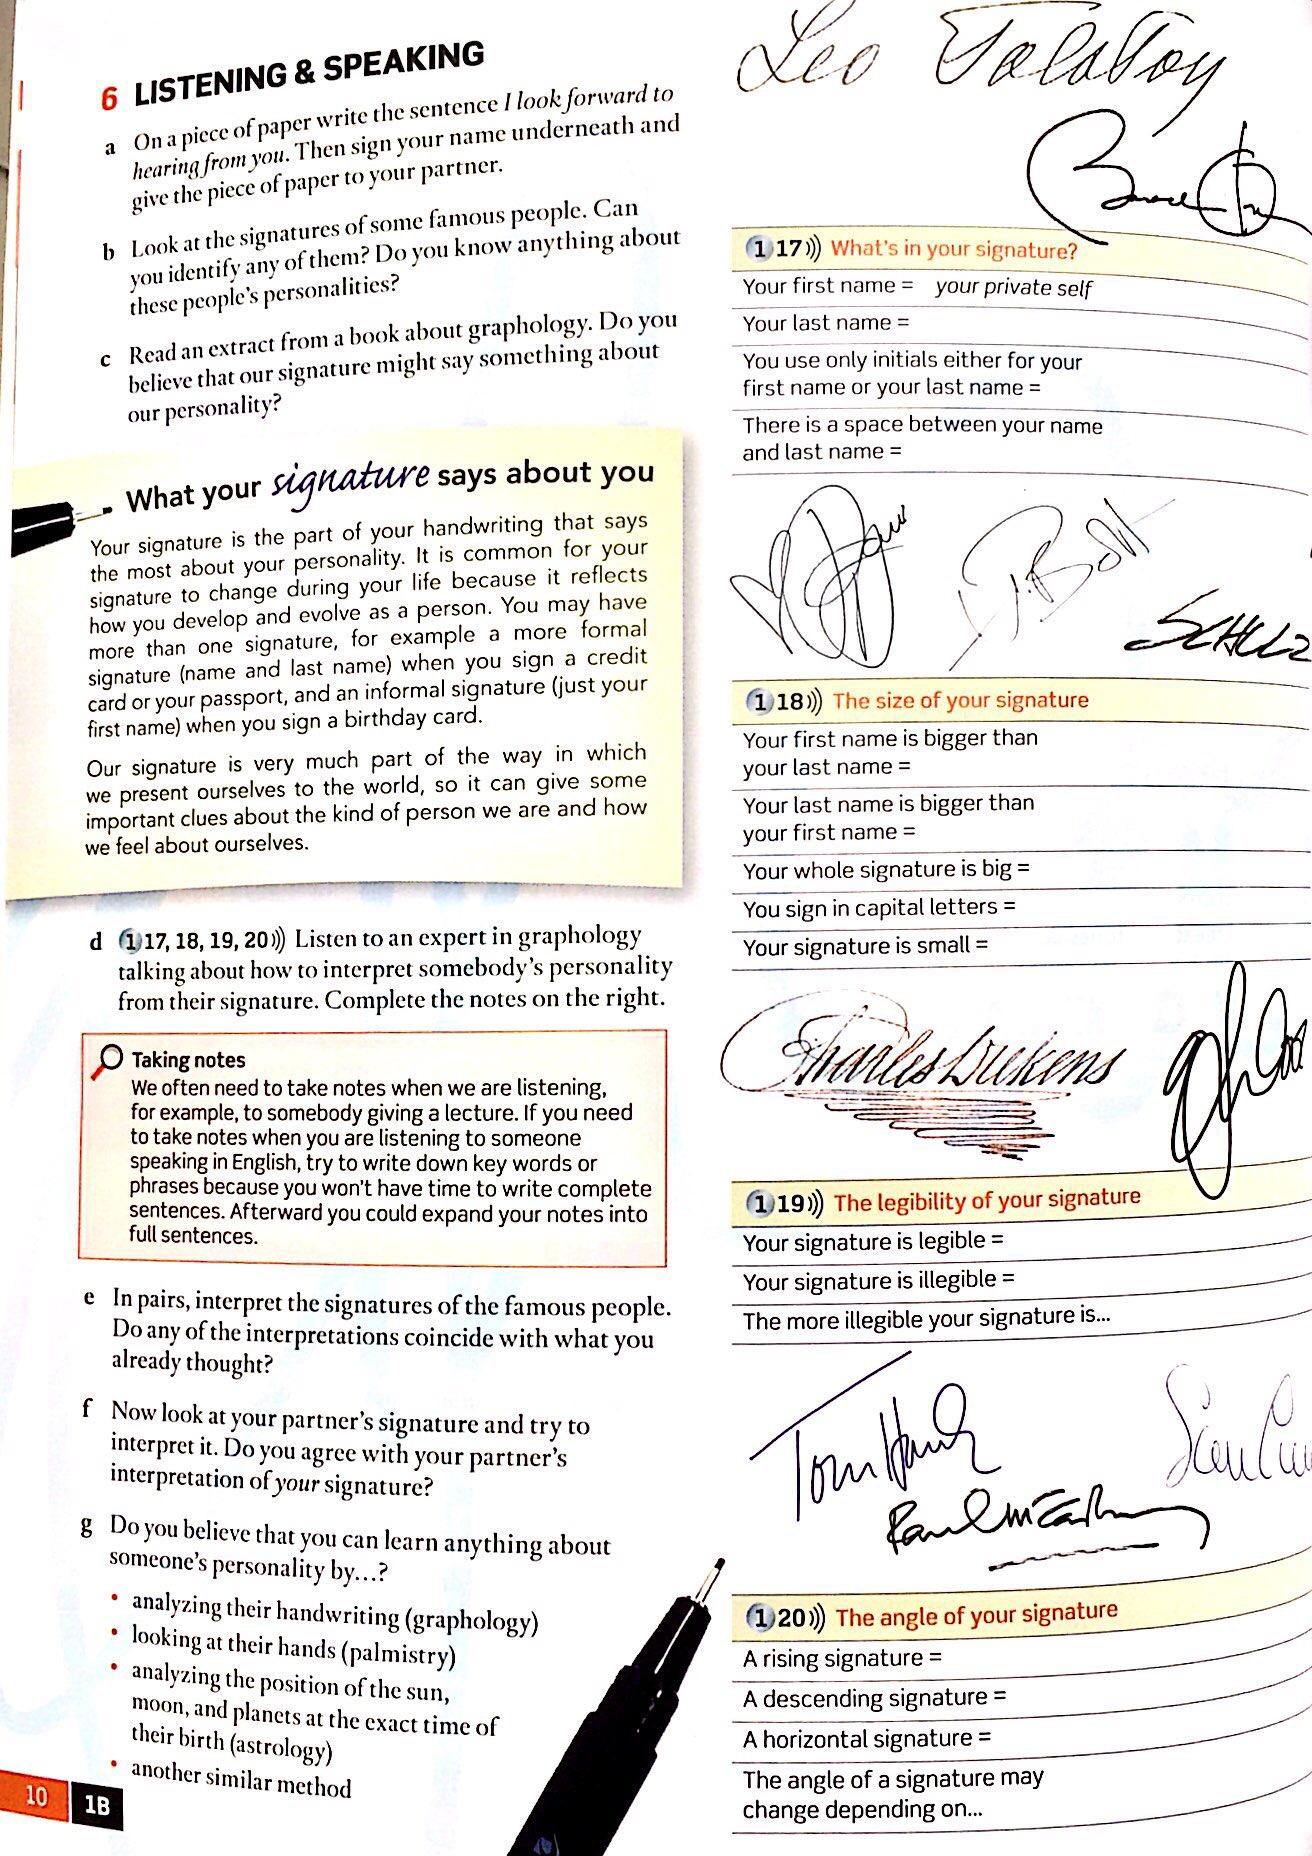 6 LISTENING & SPEAKING
a On a piece of paper write the sentence I look forward to
hearing from you. Then sign your name underneath and
give the piece of paper to your partner.
b Look at the signatures of some famous people. Can
you identify any of them? Do you know anything about
these people's personalities?
c Read an extract from a book about graphology. Do you
believe that our signature might say something about
our personality?
What your signature says about you
Your signature is the part of your handwriting that says
the most about your personality. It is common for your
signature to change during your life because it reflects
how you develop and evolve as a person. You may have
more than one signature, for example a more formal
signature (name and last name) when you sign a credit
card or your passport, and an informal signature (just your
first name) when you sign a birthday card.
Our signature is very much part of the way in which
we present ourselves to the world, so it can give some
important clues about the kind of person we are and how
we feel about ourselves.
d 1 17, 18, 19, 20))) Listen to an expert in graphology
talking about how to interpret somebody's personality
from their signature. Complete the notes on the right.
Taking notes
We often need to take notes when we are listening,
for example, to somebody giving a lecture. If you need
to take notes when you are listening to someone
speaking in English, try to write down key words or
phrases because you won't have time to write complete
sentences. Afterward you could expand your notes into
full sentences.
e In pairs, interpret the signatures of the famous people.
Do any of the interpretations coincide with what you
already thought?
f Now look at your partner's signature and try to
interpret it. Do you agree with your partner's
interpretation of your signature?
g Do you believe that you can learn anything about
someone's personality by...?
• analyzing their handwriting (graphology)
• looking at their hands (palmistry)
• analyzing the position of the sun,
moon, and planets at the exact time of
their birth (astrology)
• another similar method
10 1B
Leo Tolstoy
1 17))) What's in your signature?
Your first name = your private self
Your last name =
You use only initials either for your
first name or your last name =
There is a space between your name
and last name =
SCHULZ
1 18))) The size of your signature
Your first name is bigger than
your last name =
Your last name is bigger than
your first name =
Your whole signature is big =
You sign in capital letters =
Your signature is small =
Charles Dickens
1 19))) The legibility of your signature
Your signature is legible =
Your signature is illegible =
The more illegible your signature is...
Tom Hanks
Paul McCartney
1 20))) The angle of your signature
A rising signature =
A descending signature =
A horizontal signature =
The angle of a signature may
change depending on...